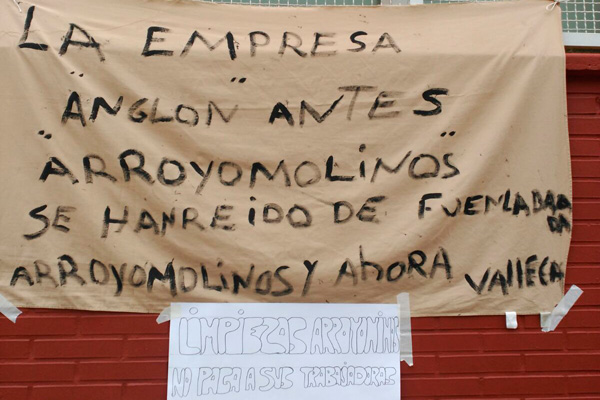 LA EMPRESA
"ANGLON" ANTES
"ARROYOMOLINOS"
SE HAN REIDO DE FUENLABRA
DA
ARROYOMOLINOS Y AhORA VALLECA
LIMPIEZAS ARROYOMLINS
NO PAGA A SUS TRABAJADORAS